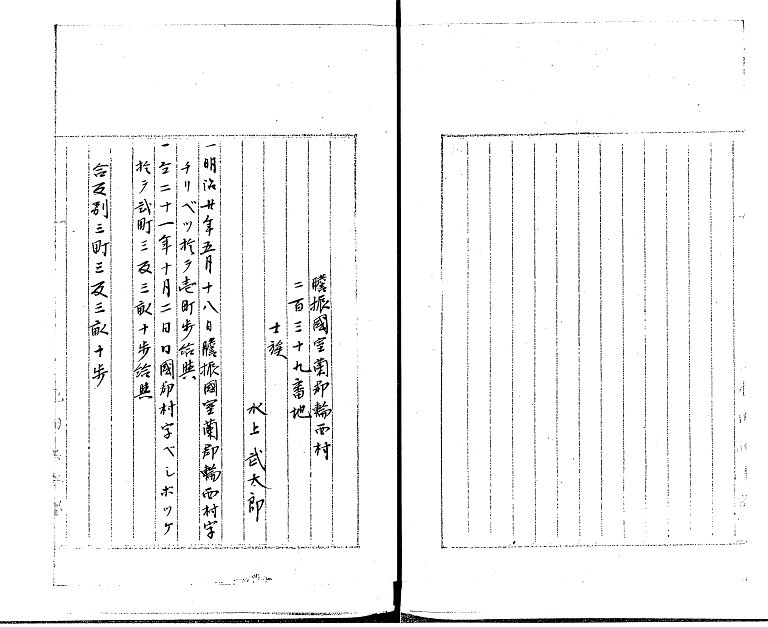 膽振國室蘭郡輪西村
二百三十九番地
士族
水上武太郎
一明治廿年五月十八日膽振國室蘭郡輪西村字
チリベツ於テ壱町歩給與
一仝二十一年十月二日同國郡村字ペシホツケ
於テ弐町三反三畝十歩給與
合反別三町三反三畝十歩